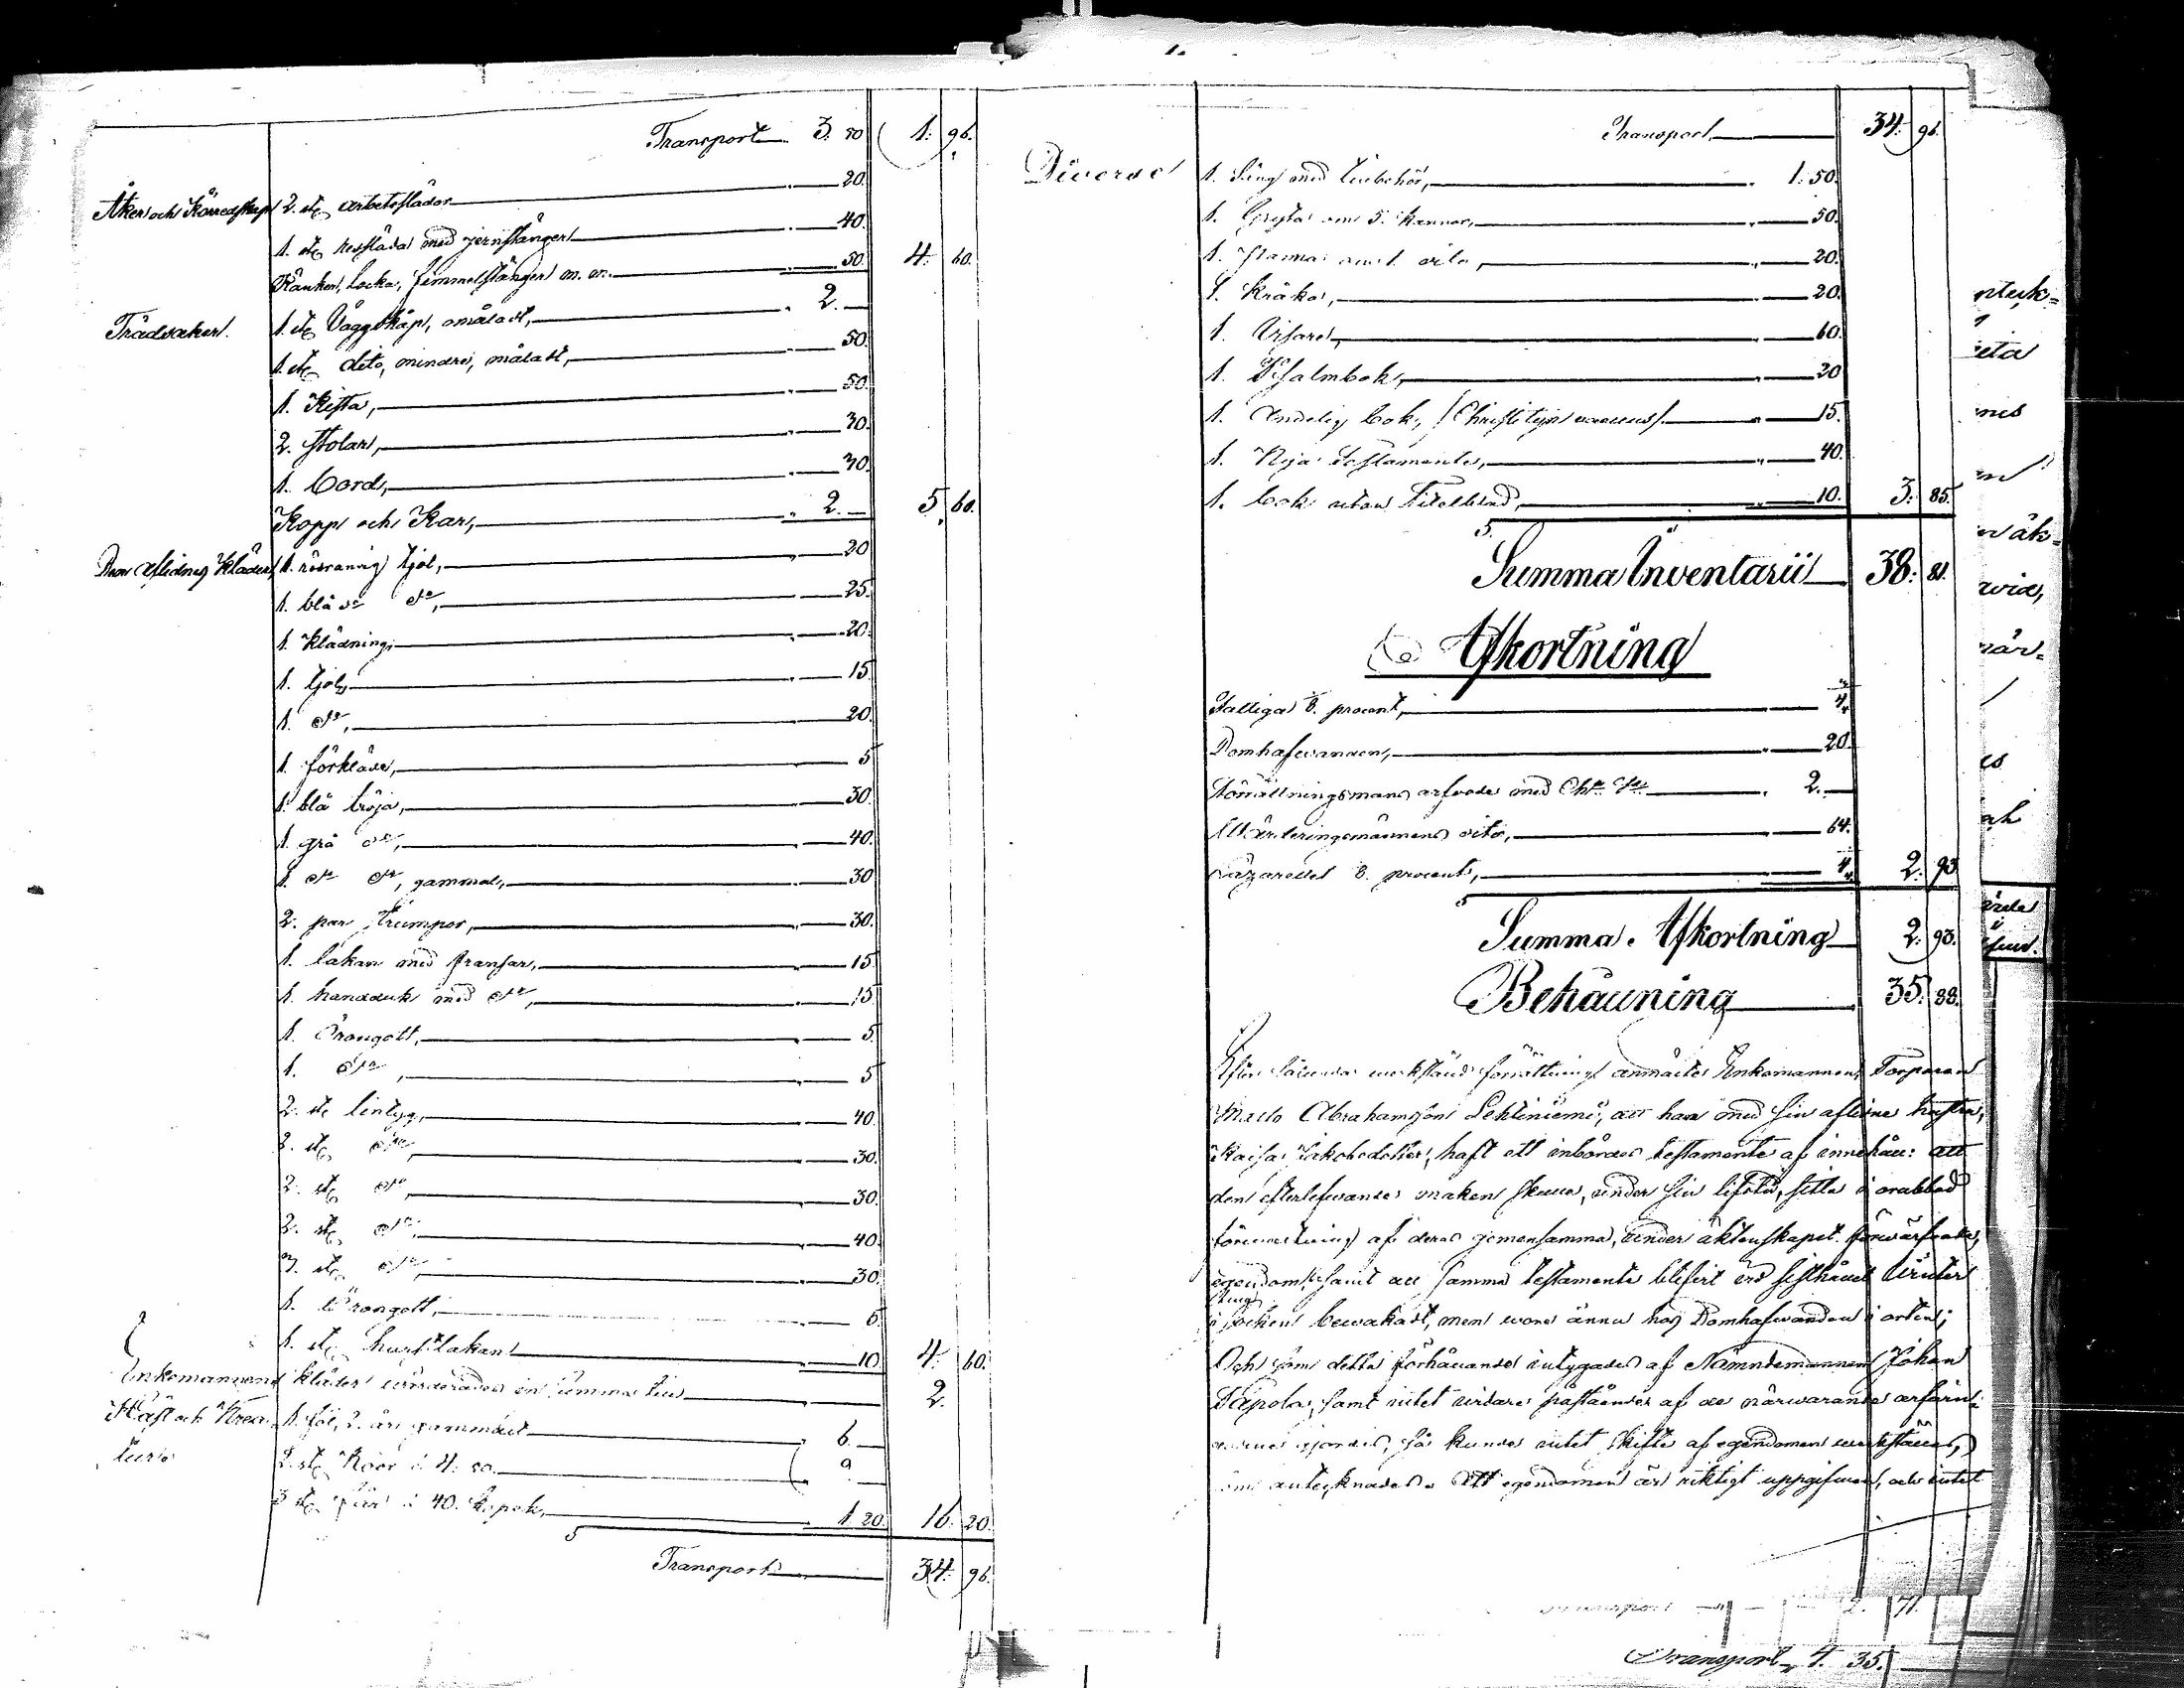 Transport 3. 50 1. 96.
Åker och Körredskap 2. st. arbetsslädor 20.
1. st. resslåda med jernstänger 40.
Rankor, locka, fimmelstänger m. m. 50. 4. 60.
Trädsaker. 1. st. Väggskåp, omåladt, 2.
1. st. dito, mindre, måladt, 50.
1. Kista, 50.
2. stolar, 30.
1. bord, 30.
Kopp och Kar, 2. 5. 60.
Den aflidnes kläder 1. rödrannig kjol, 20
1. blå do do, 25.
1. klädning, 20.
1. kjol, 15.
1. do, 20.
1. förkläde, 5
1. blå tröja, 30.
1. grå do, 40.
1. do do, gammal, 30
2. par strumpor, 30.
1. lakan med fransar, 15
1. handduk med do, 15
1. Örongott, 5.
1. do, 5
2. st. lintyg, 40.
2. st. do, 30.
2. st. do, 30.
2. st. do, 40.
3. st. do, 30.
1. Örongott, 5.
1. st. hurst lakan 10. 4. 60.
Enkomannens kläder värderades in summa till 2.
Häst och Krea- 1. föl, 2. år gammalt 6.
tur. 2. st. Kor à 4: 50. 9.
3 st. får à 40. kopek, 1. 20. 16. 20.
Transport 34. 96.
Transport 34. 96.
Diverse 1. Säng med tillbehör, 1. 50.
1. Gryta om 5. kannor, 50.
1. Panna om 1. dito, 20.
1. Kråka, 20.
1. Visare, 60.
1. Psalmbok, 20
1. Andelig bok, / Christi 15.
1. Nya Testamente, 40.
1. bok utan Titelblad, 10. 3. 85.
Summa Inventarii 38. 81.
Afkortning
Fattiga 8. procent, 4.
Domhafwanden, 20.
Förrättningsmans arfvode med 2.
Wärderingsmännens dito, 64.
Lazarettet 8. procent, 4. 2. 93.
Summa Afkortning 2. 93.
Behållning 35. 88.
Efter sålunda werkstäld förrättning anmälte Enkomannen, Torparen
Matts Abrahamsson Lehtiniemi, att han med sin aflidne hustru,
Kaisa Jakobsdotter, haft ett inbördes testamente af innehåll: att
den efterlefwande maken skulle, under sin lifstid, sitta i orubbad
förwaltning af deras gemensamma, under äktenskapet förwärfwade,
egendom, samt att samma testamente blifvit wid sisthållet Winter
ting
i socken bewakadt, men wore ännu hos Domhafwanden i orten;
Och som detta förhållande intygades af Nämndemannen Johan
Tapola, samt intet widare påstående af de närwarande arfwin-
garne gjordes, så kunde intet skifte af egendomen werkställas,
som antecknades. Att egendomen är riktigt uppgifwen, och intet
Transport 2. 71.
Transport 4. 35.